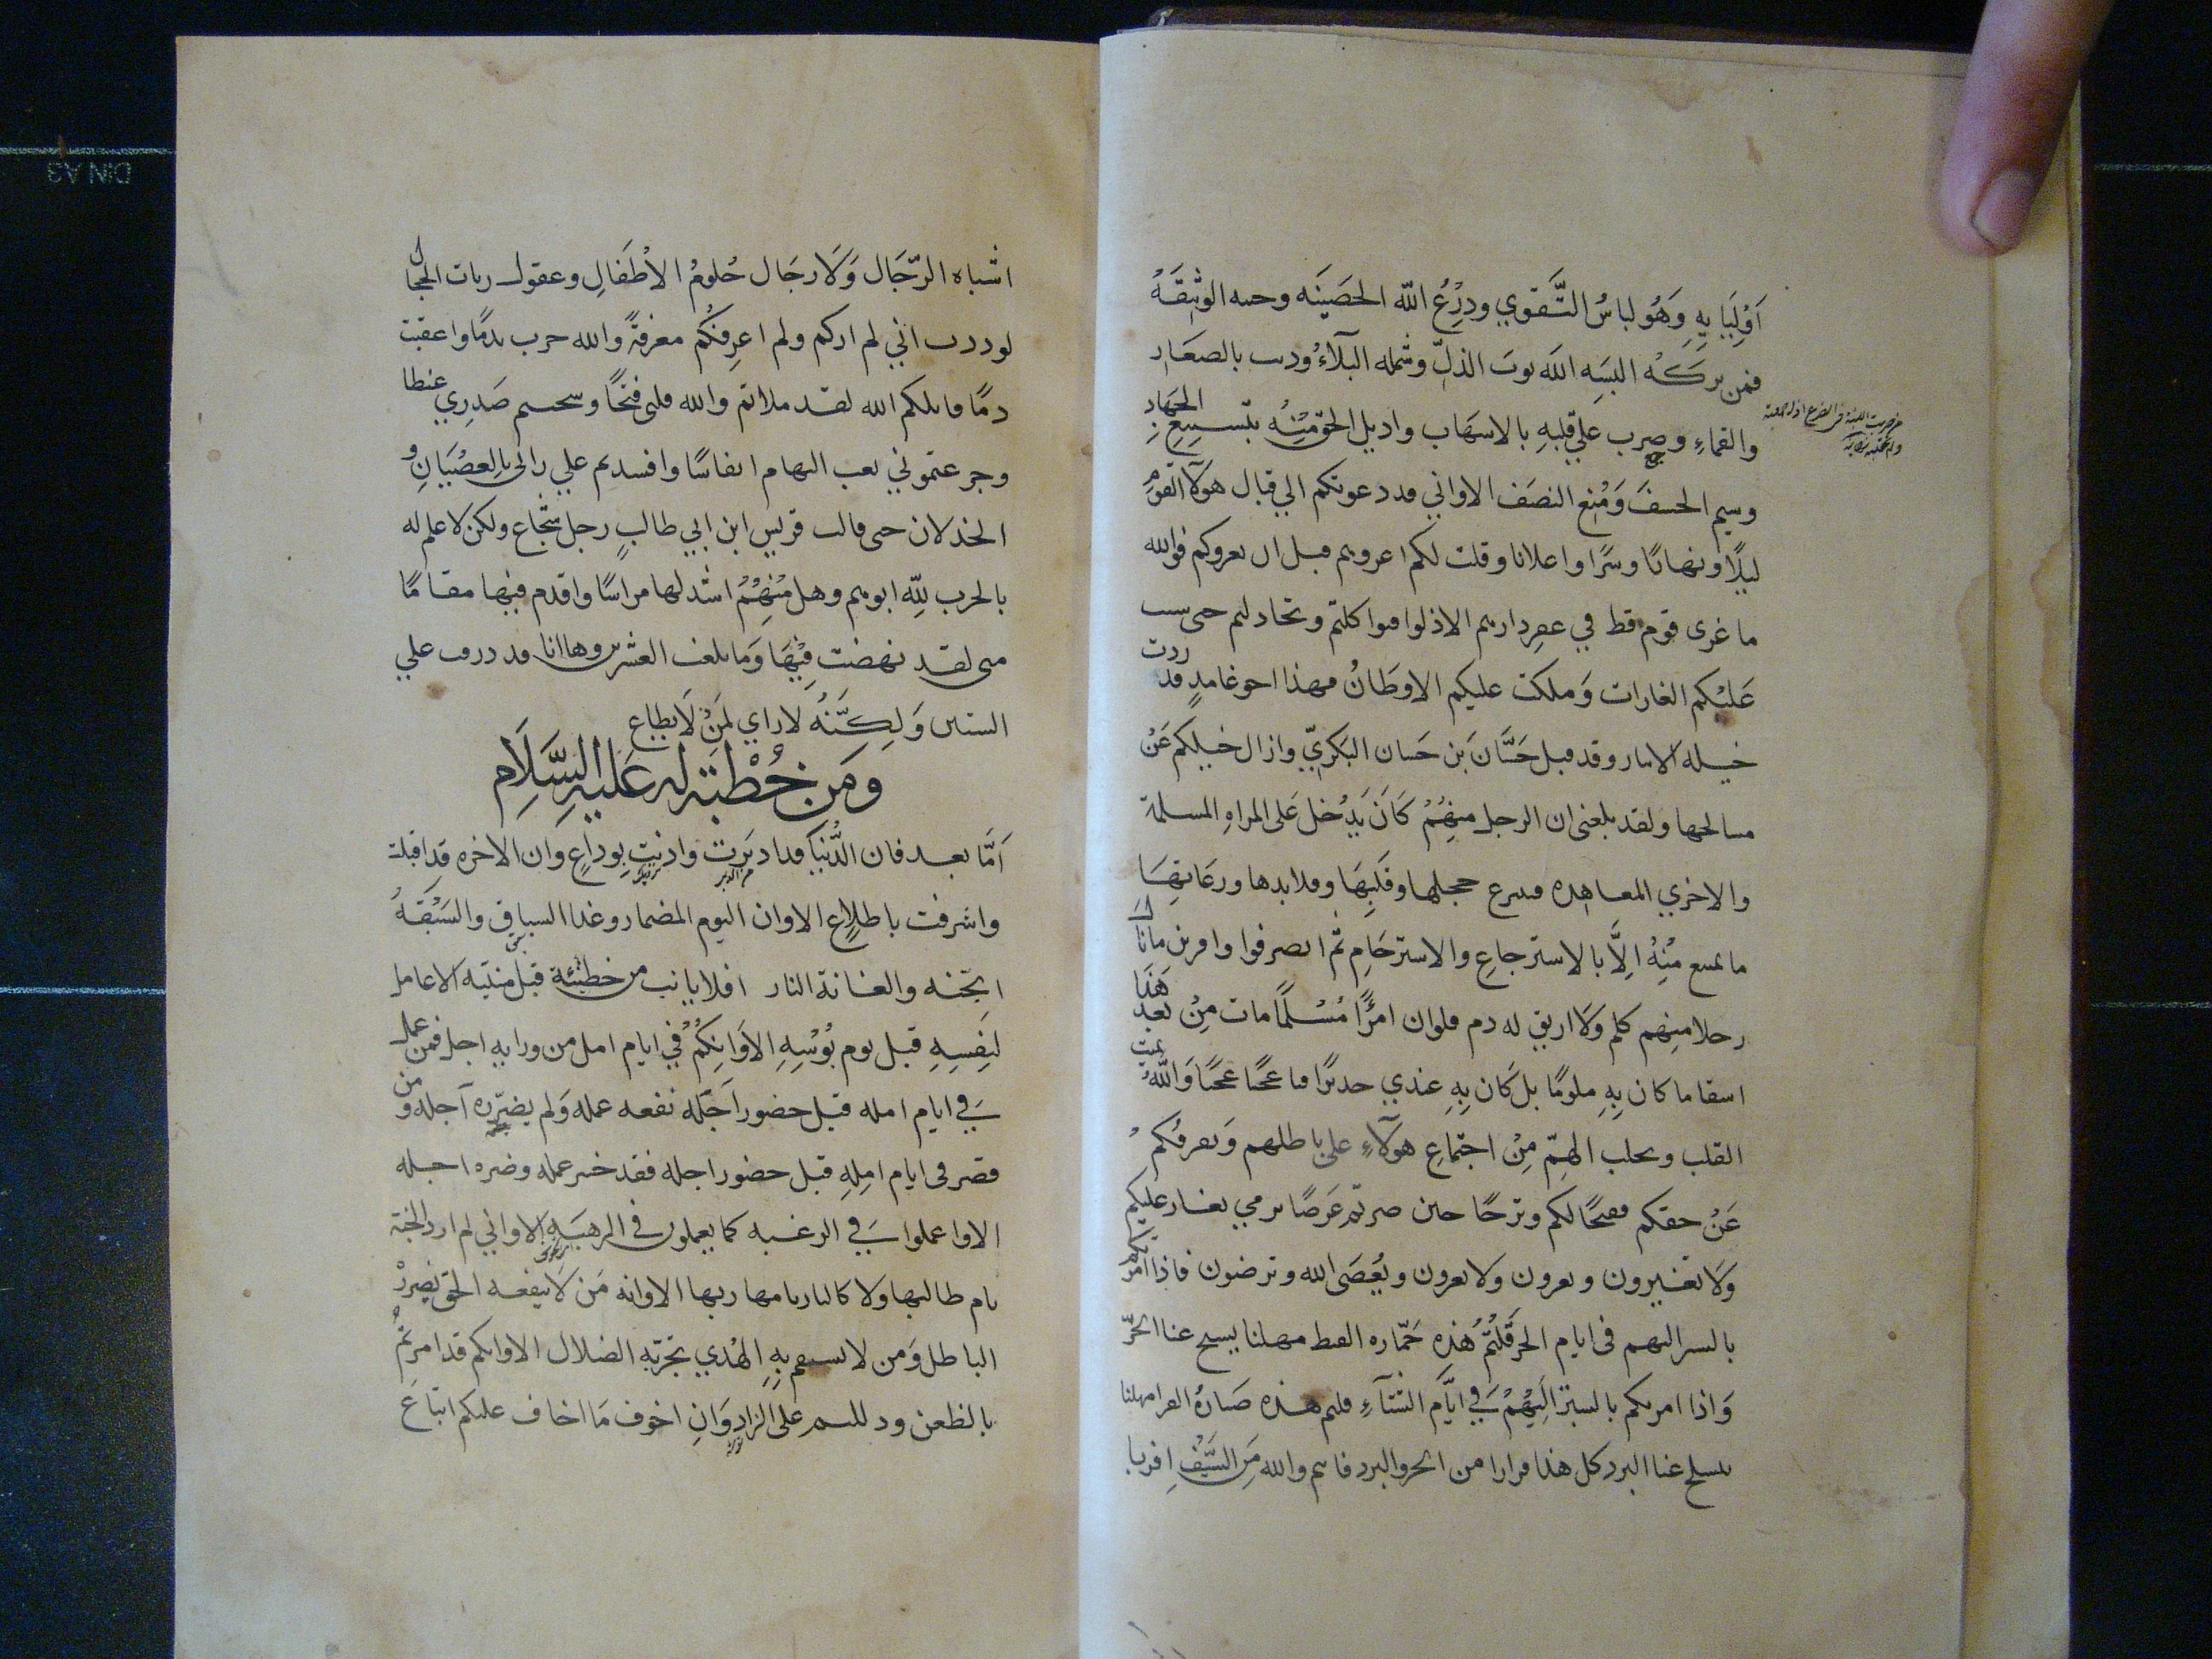 اَوْلِيَايِهِ وَهُو لباسُ التَّقوي ودِرْعُ الله الحصَينَه وجنه الوثيقَهُ
فمن تركَهُ البسَه الله ثوبَ الذلّ وشمله البلآءُ وديث بالصغار
والقماءِ وضرب علي قلبهِ بالاسهَاب واديل الحق مِنْهُ بتضييع الجهَادِ
وسيم الخسفَ وَمُنع النصَف الا واني قد دعوتكم الي قتال هولآ القوم
ليلًا ونهارًا وسَرًا واعلانا وقلت لكم اغزوهم قبل ان يغزوكم فوالله
ما غزى قوم قط في عقر دارهم الا ذلوا فتواكلتم وتخاذلتم حتى شنت
عَليْكم الغارات وَملكت عليكم الاوطَانُ فهذا اخو غامدٍ قد وردت
خيله الانبار وقد قتل حَسَّانَ بن حَسان البَكريّ وازال خيلكم عَنْ
مسالحها ولقد بلغنى ان الرجل منهُمْ كَانَ يَدْخل عَلى المراهِ المسلمة
والاخري المعاهده فينزع حجلها وقَلبِهَا وقلايدها ورعَاثهَا
ما تمتنع مْنِهُ اِلَّا بالاسترجاعِ والاسترحَامِ ثم انصرفوا وافرين ما نال
رجلا منهم كلم وَلا اريق له دم فلوان امرًا مُسْلمًا مات مِنْ بَعْد هَذَا
اسفا ما كان بِهِ ملومًا بل كَان بِهِ عندي جديرًا فيا عجبًا عجبًا وَاللهِ يميت
القلب ويجلب الهمّ مِنْ اجتماعِ هولآءِ على باطلهم وَتفرقكمْ
عَنْ حقكم فقبحًا لكم وترحًا حين صرتم غَرضًا يرمي يغار عليكم
وَلا تغيرون وتغزون ولا تغزون ويُعْصَى الله وترضون فاذا امرتكم
بالسير اليهم فى ايام الحر قُلتُمْ هَذه حَمّاره القيظ امهلنا يسبح عنا الحرّ
وَاذا امرتكم بالسيَر الَيْهِمْ فَي ايَّام الشتآءِ قلتم هذه صَبارهُ القر امهلنا
ينسلخ عنا البرد كل هذا فرارا من الحر والبرد فانتم والله مَن السَيْف افر يا
اشباه الرّجَال وَلَا رجَال حُلومُ الاْطْفَالِ وعقول ربات الحجال
لوددت اني لم اركم ولم اعرفكُم معَرفةً والله جرت ندمًا واعقبت
ذمًا قاتلكم الله لقد ملاتم والله قلبى قيحًا وشحنتم صَدرِي غيظا
وجرعتموني نغب التهام انفاسًا وافسدتم علي رايى بالعصْيَانِ و
الخذلان حتى قالت قريش ابن ابي طالبٍ رجل شجاع ولكن لا علم له
بالحرب لِلّه ابوهم وهل مْنِهُمْ اشد لها مراسًا واقدم فيها مقامًا
منى لقد نهضت فِيْهَا وَما بلغت العشرين وها انا قد ذرفت علي
الستين وَلكِنَّنهُ لا راي لمَنْ لَا يطاع
وَمن خُطْبَة له عَلَيهِ السَّلَامِ
اَمَّا بعد فان الدُّنيَا قد ادبَرت واذنت بِوداعٍ وَان الاخره قد اقبلت
واشرفت باطلاعٍ الا وان اليوم المضمار وغدا السباق والسَبَقَهُ
الجنه والغاية النار افلا تايب من خطيئة قبل منيته الا عامل
لنفسِهِ قبل يوم بُوسْهِ الا وَانكم في ايام امل من ورايه اجل فمن عمل
في ايام امله قبل حضور اَجله نفعه عمله وَلم يضرّره آجله ومن
قصر فى ايام املِهِ قبل حضور اجله فقد خسر عمله وضره اجله
الا واعملوا في الرغبه كما تعملون فى الرهبَه الا واني لم ار كالجنة
نام طالبها ولا كالنار نام هاربها الا وانه مَن لا ينفعه الحق يضررْ
الباطل وَمن لا يستقم بِهِ الهْدي يجرّ به الضلال الا وانكم قد امرتم
بالظعن ودللتم على الزاد وَانِ اخوف مَا اخاف عليكم اتباع